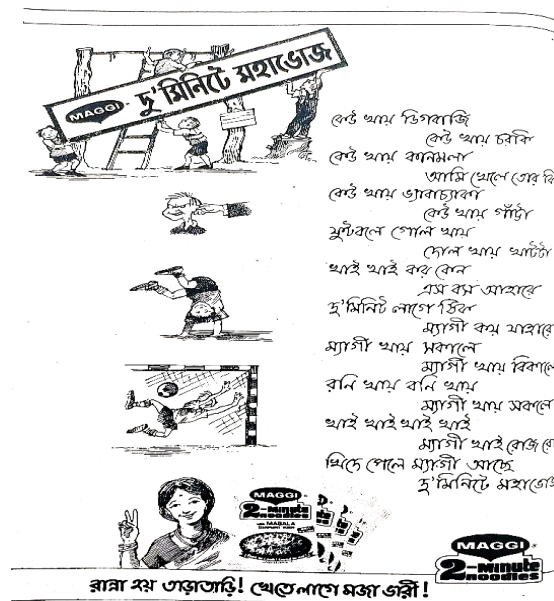 MAGGI দু'মিনিটে মহাভোজ
কেউ খায় ডিগবাজি
কেউ খায় চরকি
কেউ খায় কানমলা
আমি খেলে তোর কি
কেউ খায় ভ্যাবাচ্যাকা
কেউ খায় গাঁট্টা
ফুটবলে গোল খায়
দোল খায় খাটটা
খাই খাই কর কেন
এস বস আহারে
দু'মিনিট লাগে ঠিক
ম্যাগী কয় যাহারে
ম্যাগী খায় সকালে
ম্যাগী খায় বিকালে
রনি খায় বনি খায়
ম্যাগী খায় সকলে
খাই খাই খাই খাই
ম্যাগী খাই রোজ
খিদে পেলে ম্যাগী আছে
দু'মিনিটে মহাভোজ
MAGGI
2-minute
noodles
MASALA
MAGGI
2-minute
noodles
রান্না হয় তাড়াতাড়ি! খেতে লাগে মজা ভারী!